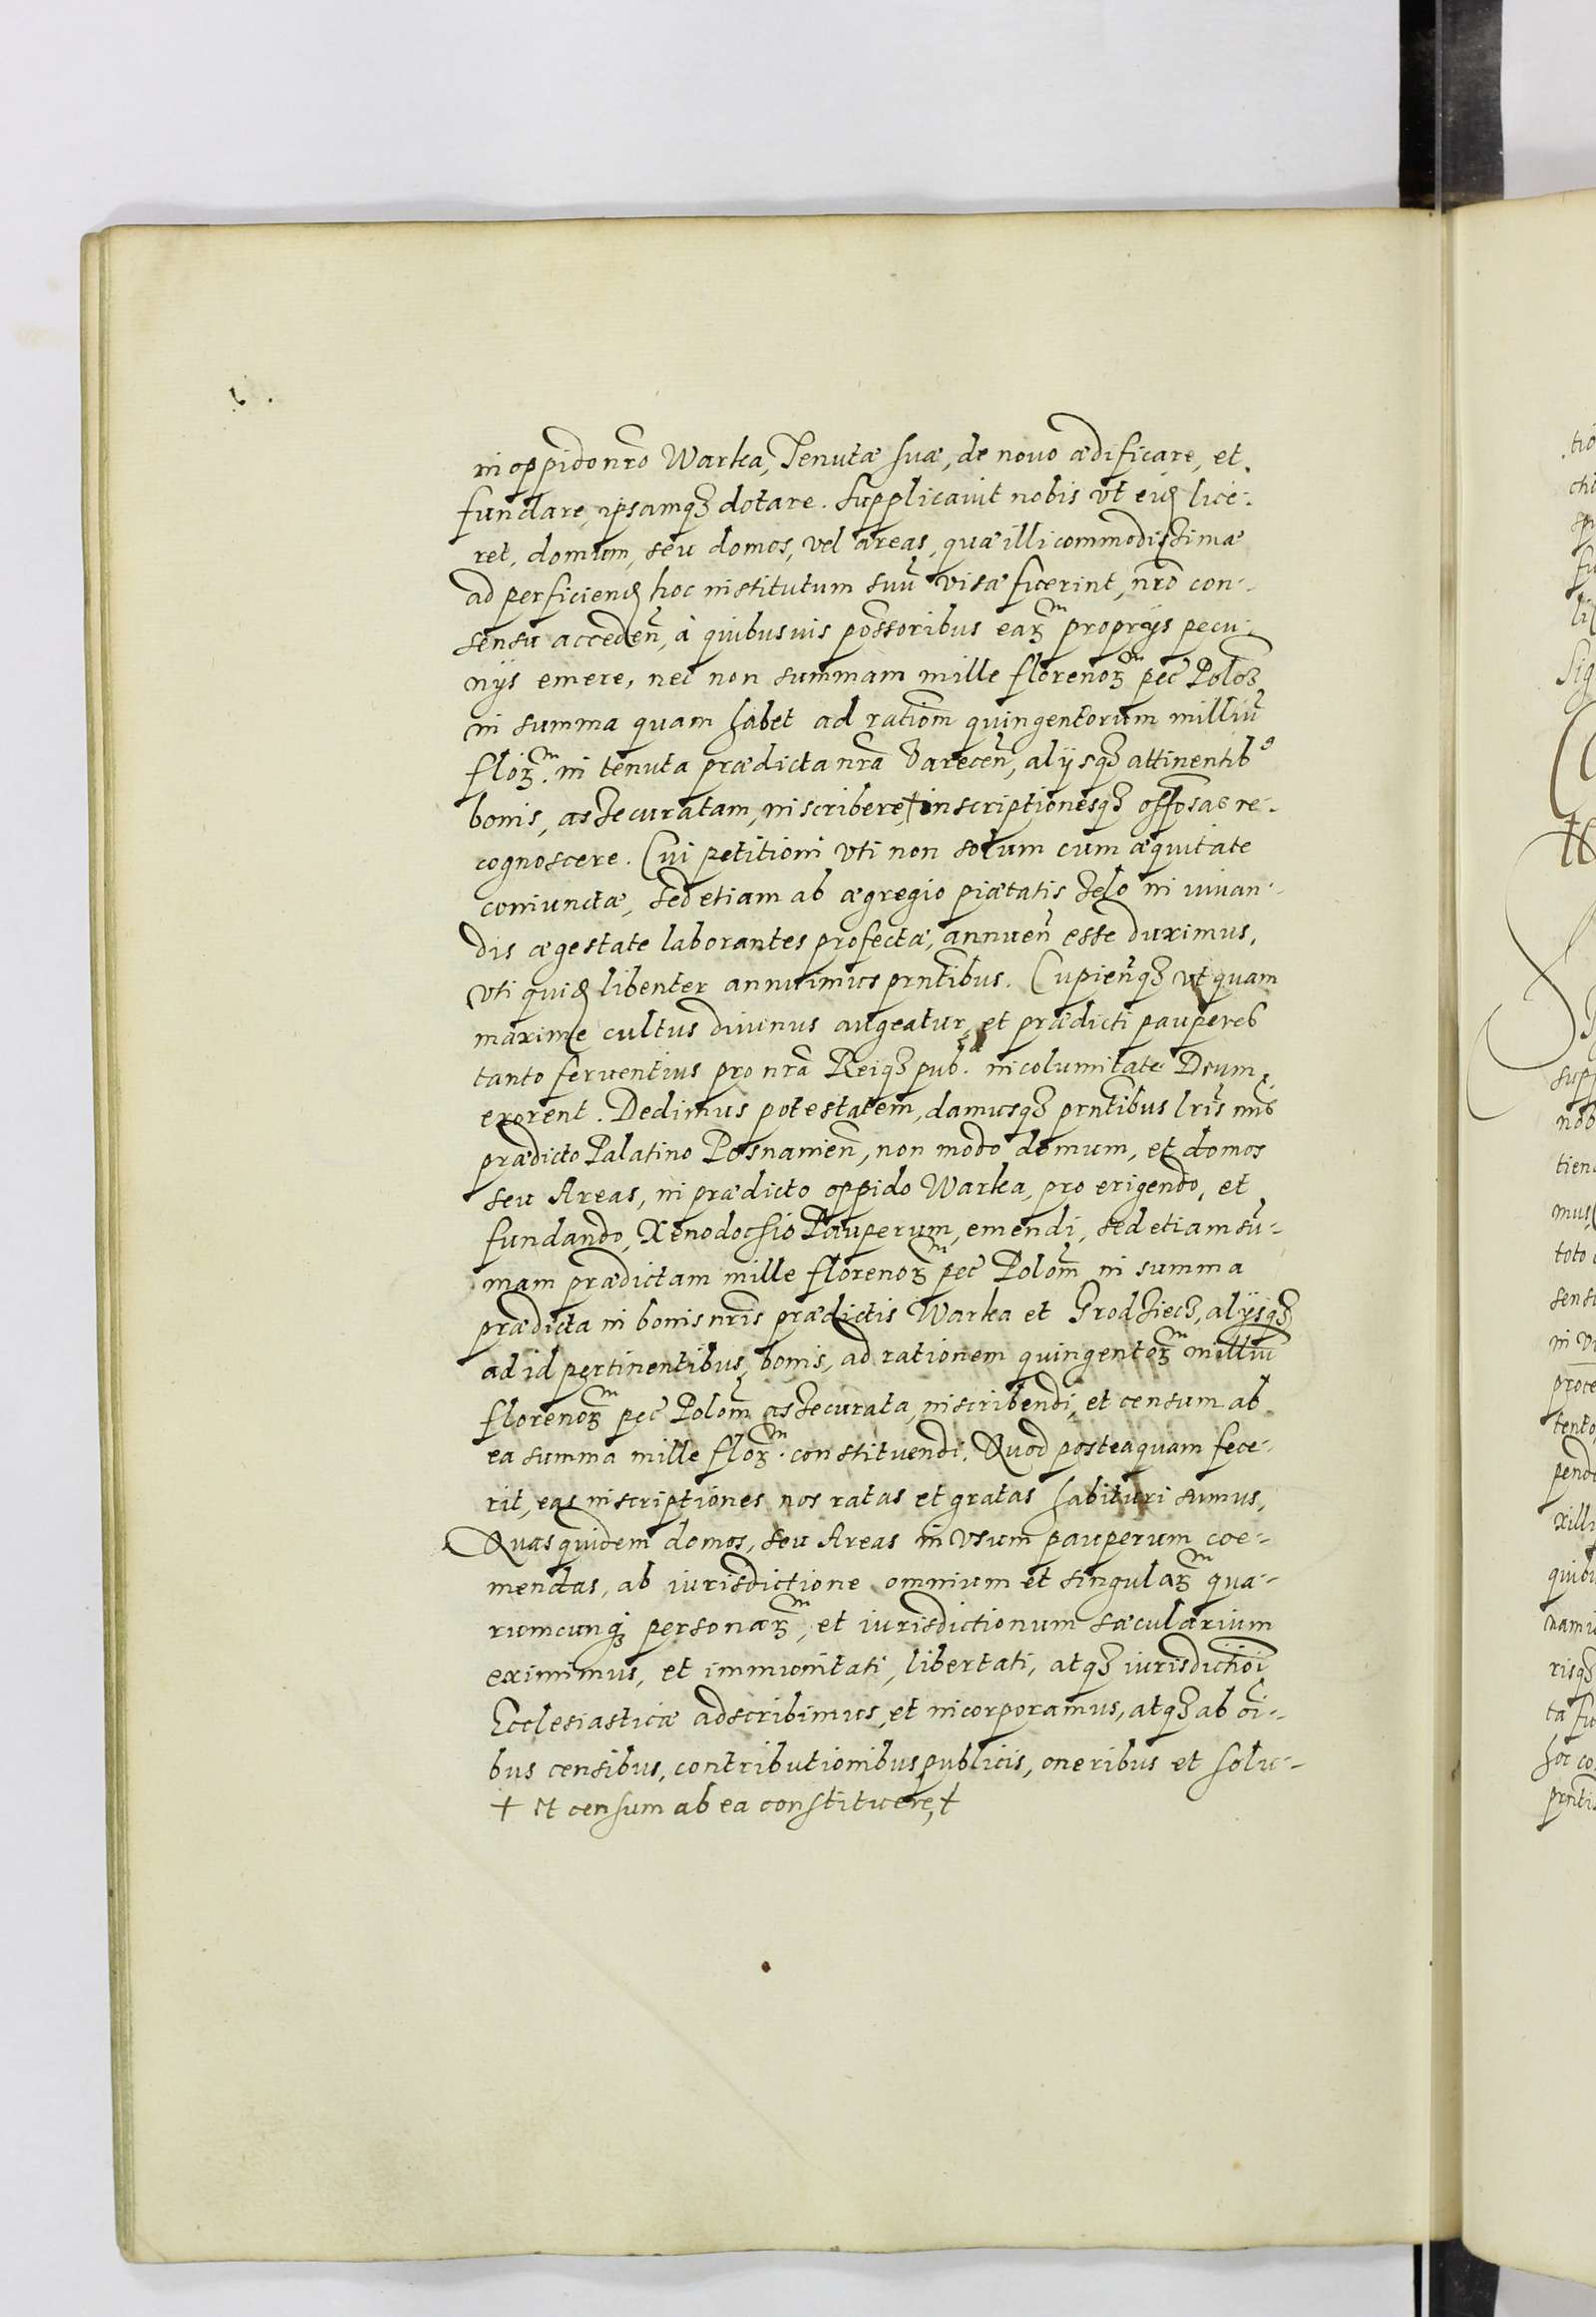 in oppido nrõ Warka, Tenutæ suæ, de novo ædificare, et
fundare, ipsamqȝ dotare. Supplicavit nobis vt eid lice-
ret, domum, seu domos, vel areas, quæ illi commodissimæ
ad perficiend hoc institutum suũ visæ fuerint, nrõ con-
sensu acceden̄, à quibusuis possoribus earȝm proprijs pecu-
nijs emere, nec non summam mille florenorȝm pec̃ Polo
in summa quam habet ad rationẽ quingentorum milliũ
florȝm. in tenuta prædicta nrã Varecen̄, alijsqȝ attinentibꝰ
bonis, assecuratam, inscribere,† inscriptionesqȝ offosas re-
cognoscere. Cui petitioni vti non solum cum æquitate
coniunctæ, sed etiam ab ægregio piætatis zelo in iuvan-
dis ægestate laborantes profectæ, annuen̄ esse duximus,
vti quid libenter annuimus prntibus. Cupien̄qȝ vt quam
maxime cultus divinus augeatur, et prædicti pauperes
tanto ferventius pro nrã Reiqȝ pub. incolumitate Deum
exorent. Dedimus potestatem, damusqȝ prntibus lrĩs nrĩs
prædicto Palatino Posnanien̄, non modo domum, et domos
seu Areas, in prædicto oppido Warka, pro erigendo, et
fundando, Xenodochio Pauperum, emendi, sed etiam sũ-
mam prædictam mille florenorȝm pec̃ Polom̃ in summa
prædicta in bonis nrĩs prædictis Warka et Grodziecȝ, alijsqȝ
ad id pertinentibus, bonis, ad rationem quingentorȝm milliũ
florenorȝm pec̃ Polom̃ assecurata, inscribendi, et censum ab
ea summa mille florȝm. constituendi. Quod posteaquam fece-
rit, eas inscriptiones nos ratas et gratas habituri sumus,
Quas quidem domos, seu Areas in vsum pauperum coe-
mendas, ab iurisdictione omnium et singularȝm qua-
rumcunqȝ personarȝm, et iurisdictionum sæcularium
eximimus, et immunitati, libertati, atqȝ iurisdictiõi
Ecclesiasticæ adscribimus, et incorporamus, atqȝ ab õi-
bus censibus, contributionibus publicis, oneribus et solu-
† et censum ab ea constituere,†